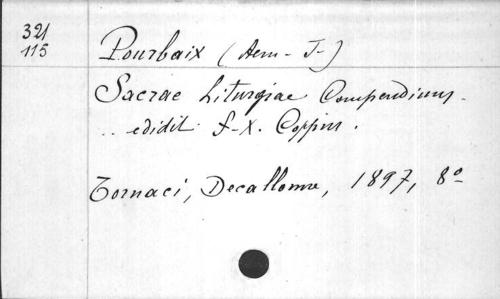 321
115
Pourbaix (Aem- J-)
Sacrae Liturgiae Compendium.
.. edidit f-X. Coppin.
Tornaci, Decallonne, 1897, 8º